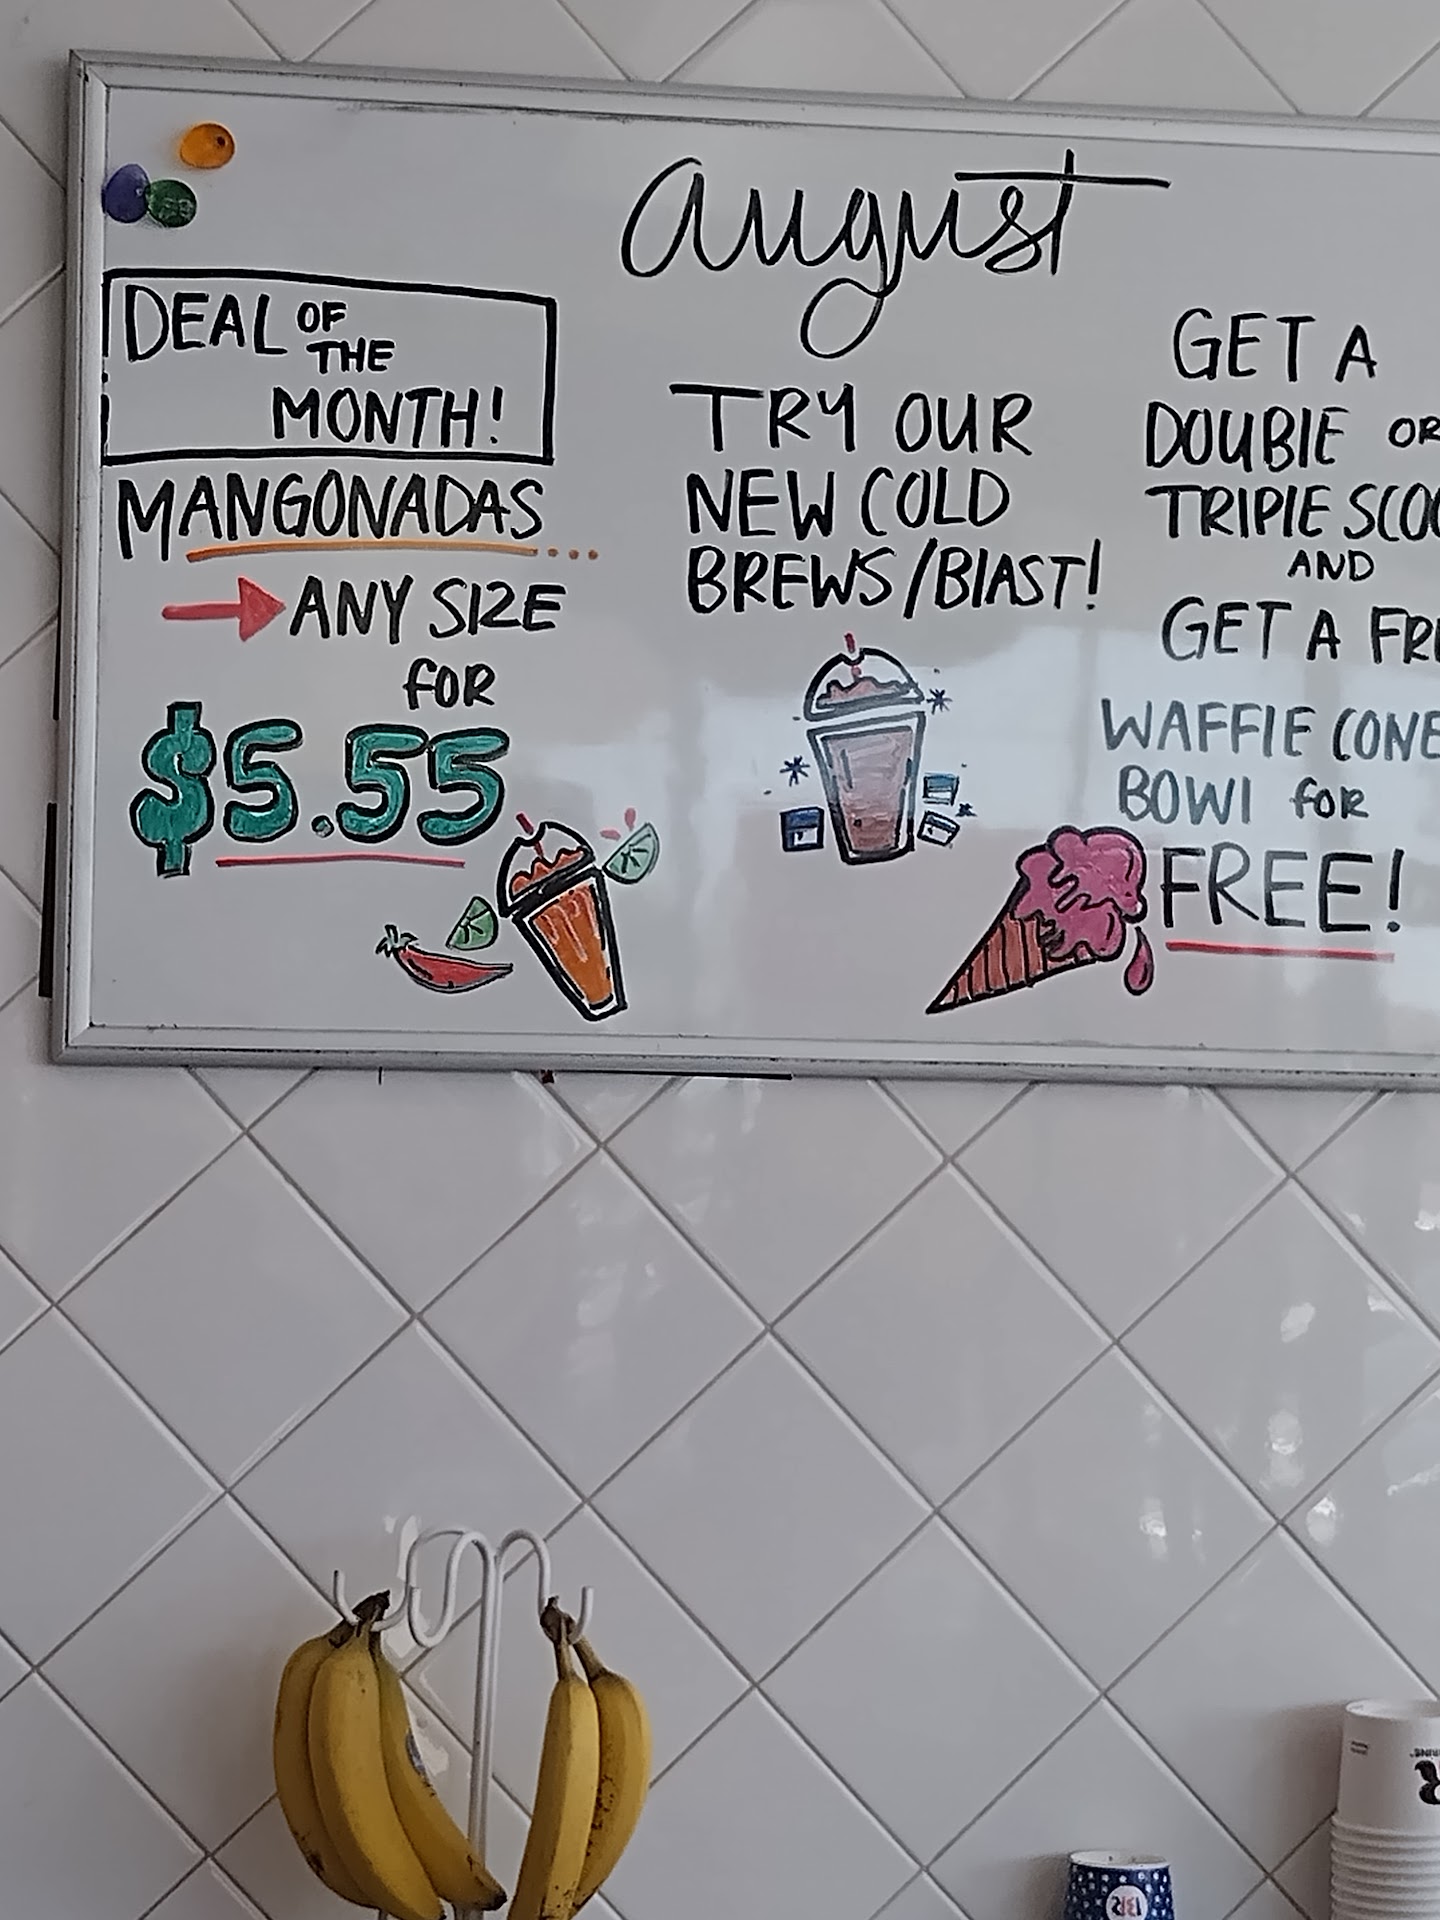 August
DEAL OF
THE
MONTH!
MANGONADAS
ANY SIZE
FOR
$5.55
TRY OUR
NEW COLD
BREWS/BlAST!
GET A
DOUBlE OR
TRIPlE SCOO
AND
GET A FRE
WAFFlE CONE
BOWl FOR
FREE!
BR